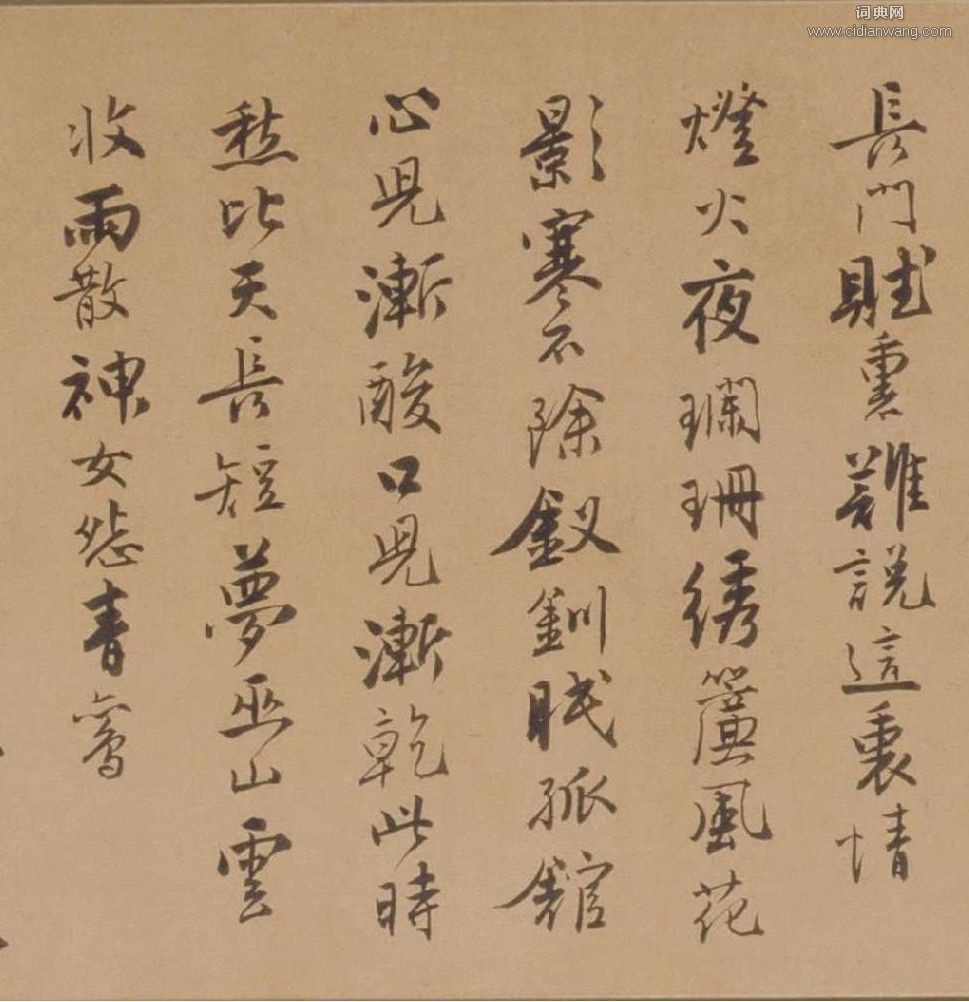 词典网
www.cidianwang.com
長門賦裏難說這裏情
燈火夜瓓珊綉簾風花
影寒不除釵釧眠孤館
心兒漸酸口兒漸乾此時
愁比天長短夢巫山雲
收雨散神女青鸞